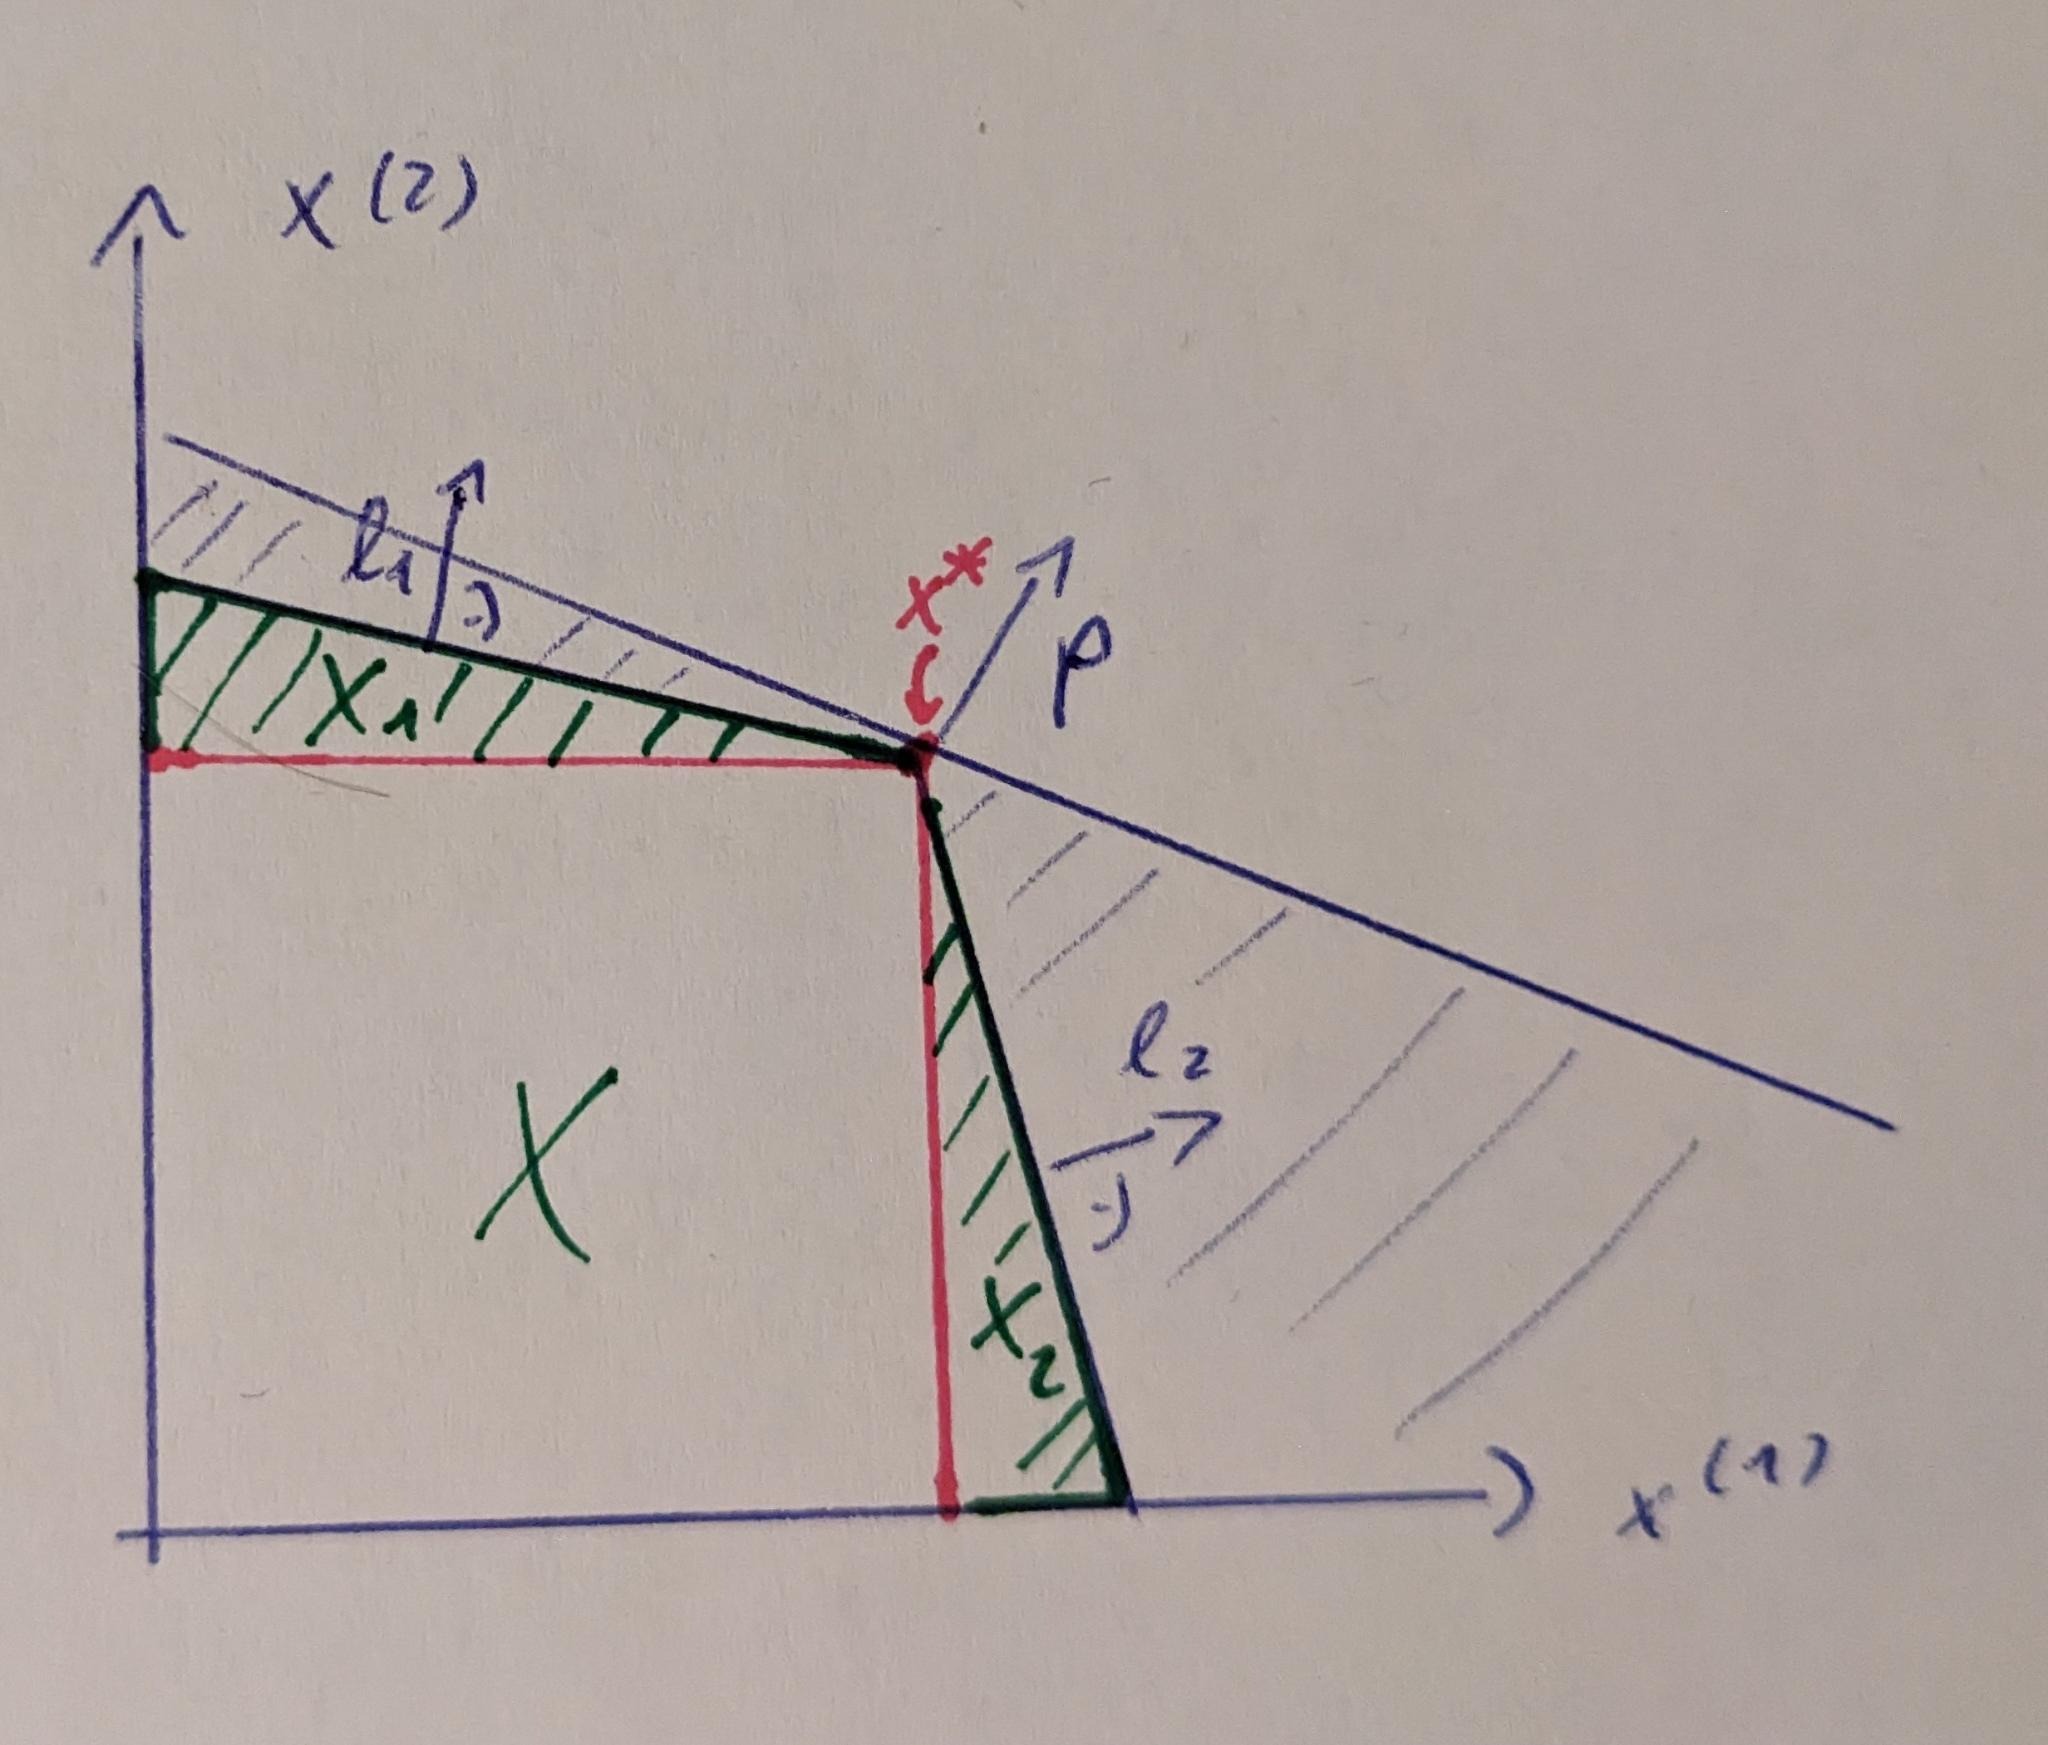 x(2)
l1
x*
p
X1
l2
X
X2
x(1)